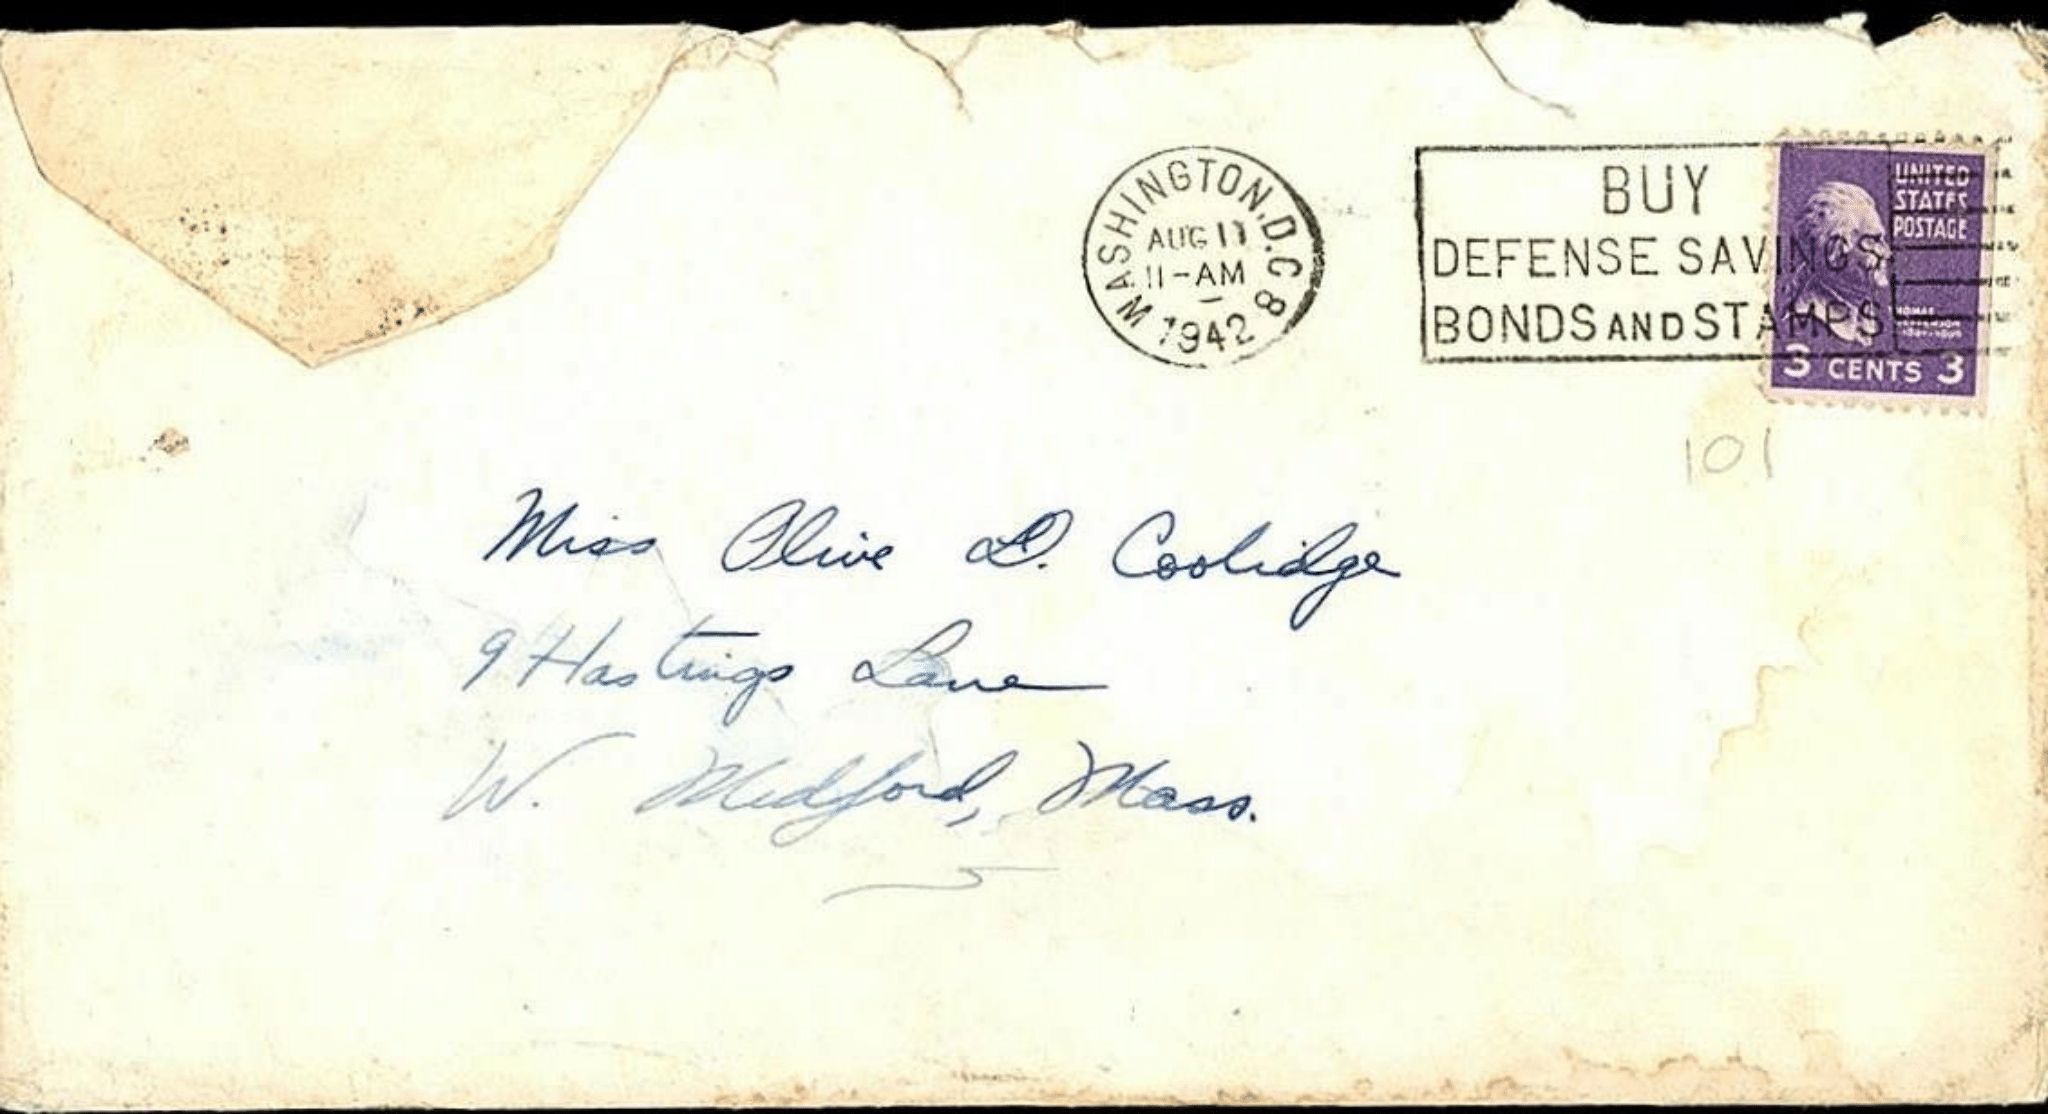 WASHINGTON, D.C. 8
AUG 11
11-AM
1942
BUY
DEFENSE SAVINGS
BONDS AND STAMPS
UNITED
STATES
POSTAGE
THOMAS
JEFFERSON
3 CENTS 3
101
Miss Olive D. Coolidge
9 Hastings Lane
W. Medford, Mass.